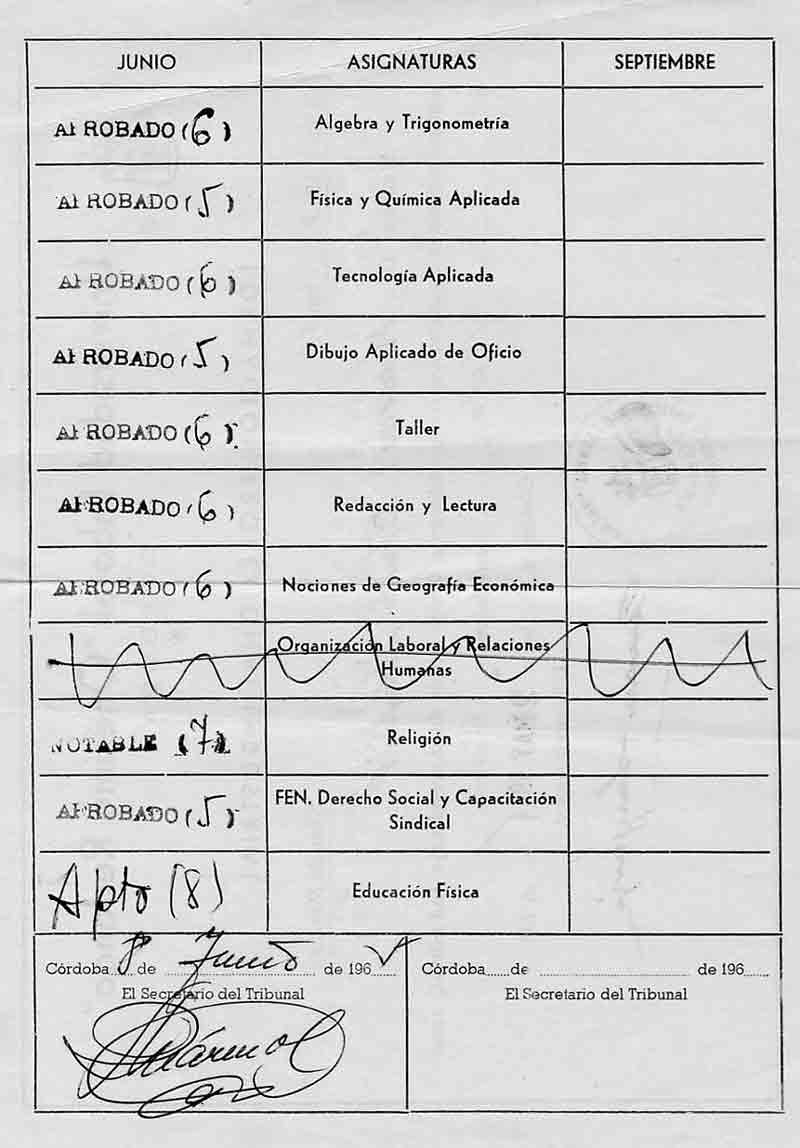 JUNIO ASIGNATURAS SEPTIEMBRE
APROBADO (6) Algebra y Trigonometría
APROBADO (5) Física y Química Aplicada
APROBADO (6) Tecnología Aplicada
APROBADO (5) Dibujo Aplicado de Oficio
APROBADO (6) Taller
APROBADO (6) Redacción y Lectura
APROBADO (6) Nociones de Geografía Económica
Organización Laboral y Relaciones
Humanas
NOTABLE (7) Religión
APROBADO (5) FEN. Derecho Social y Capacitación
Sindical
Apto (8) Educación Física
Córdoba 8 de Junio de 196
El Secretario del Tribunal
Mármol
Córdoba......de ........................ de 196......
El Secretario del Tribunal